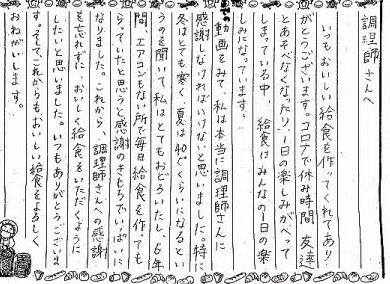 調理師さんへ
いつもおいしい給食を作ってくれてあり
がとうございます。コロナで休み時間、友達
とあそべなくなったり、1日の楽しみがへって
しまっている中、給食はみんなの1日の楽
しみになっています。
動画をみて、私は本当に調理師さんに
感謝しなければいけないと思いました。特に
冬はとても寒く、夏は40℃くらいになるとい
うのを聞いて、私はとてもおどろいたし、6年
間、エアコンもない所で毎日給食を作っても
らっていたと思うと感謝のきもちでいっぱいに
なりました。これから、調理師さんへの感謝
を忘れずに、おいしく給食をいただくように
したいと思いました。いつもありがとうございま
す。そしてこれからもおいしい給食をよろしく
おねがいします。